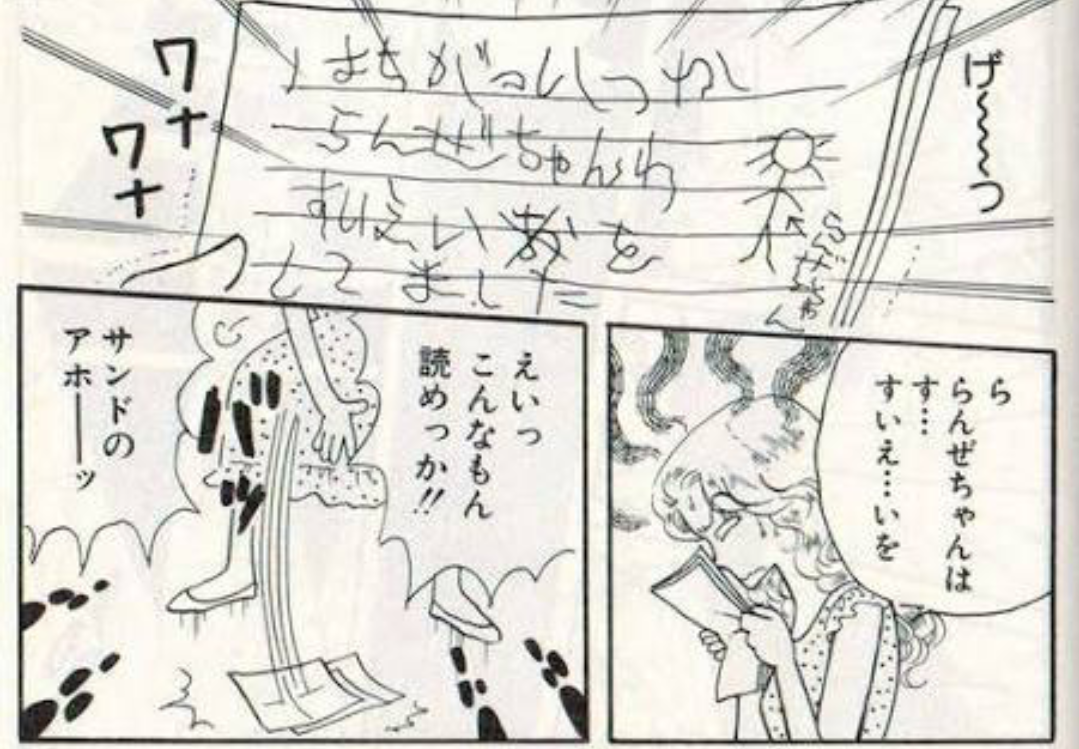 げ～～～っ
はちがついつか
らんぜちゃんわ
すいえいおを
してました
らんぜちゃん
ワナ
ワナ
ら
らんぜちゃんは
す…
すいえ…いを
えいっ
こんなもん
読めっか!!
サンドの
アホ――ッ